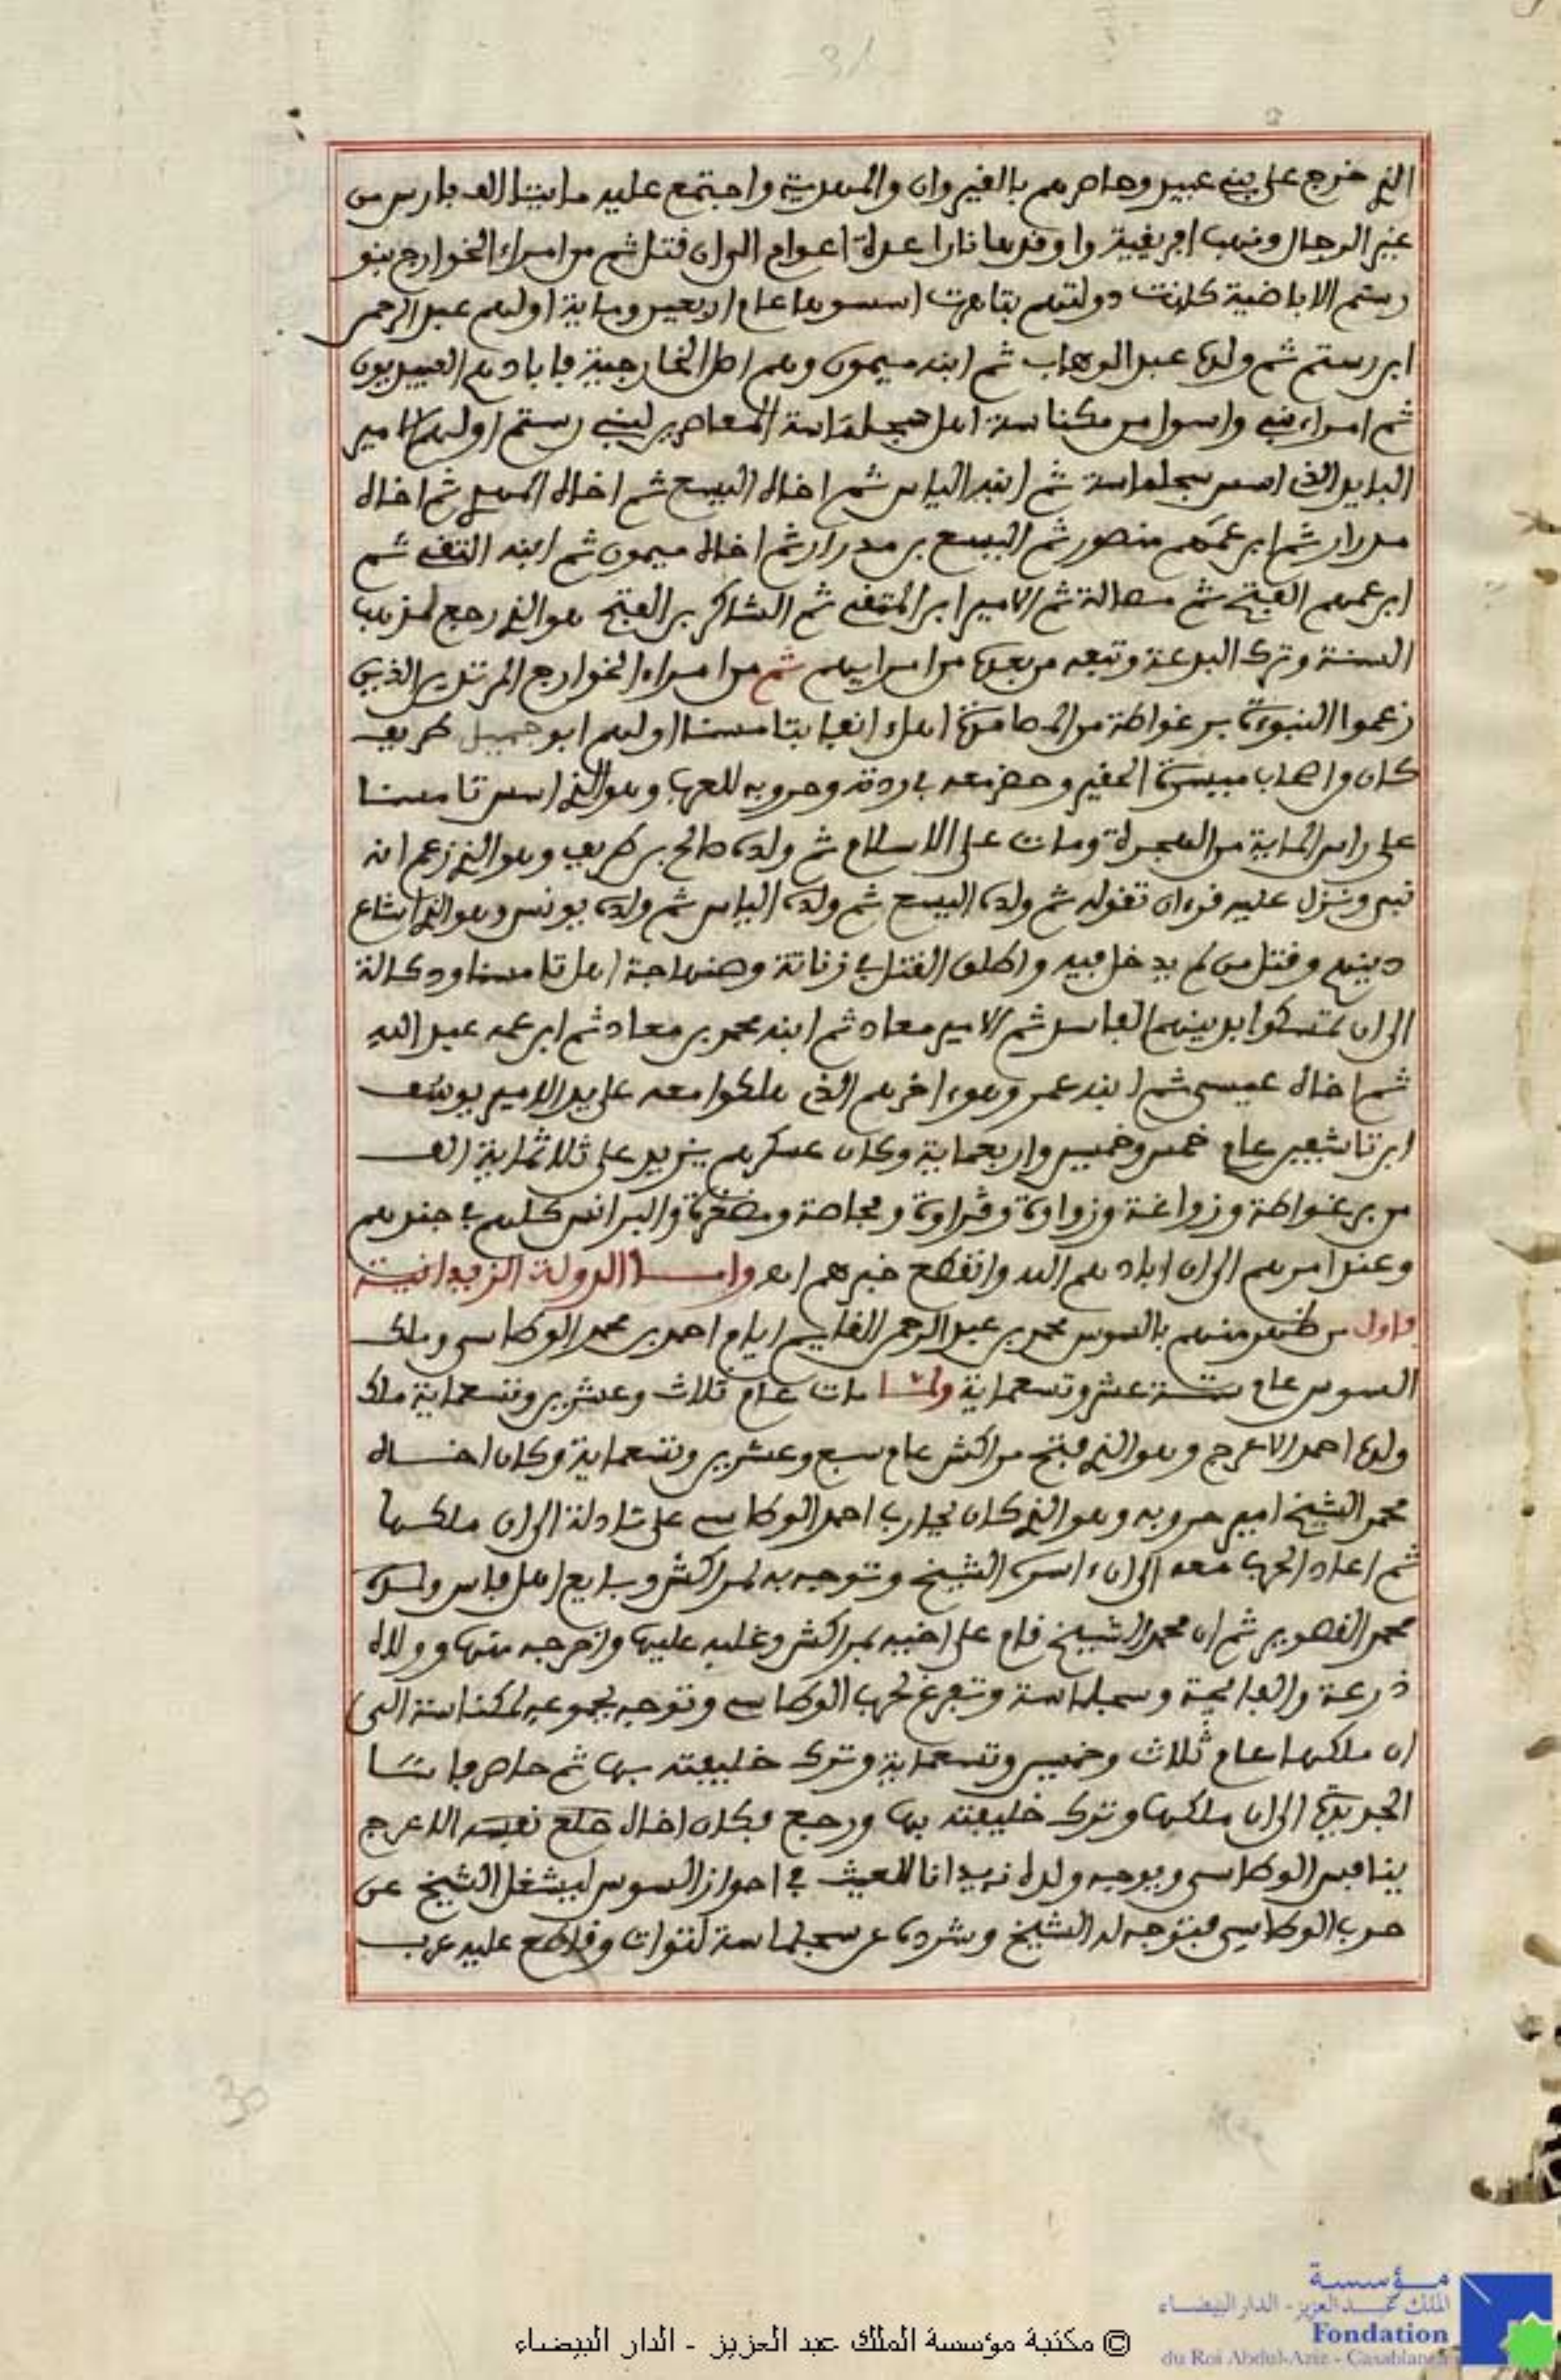 31
الذي خرج على بني عبيد وحاصرهم بالقيروان والمهدية واجتمع عليه مايتا الف فارس من
غير الرجال ونهب افريقية واوقدها نارا عدة اعوام الى ان قتل ثم من امراء الخوارج بنو
رستم الاباضية كانت دولتهم بتاهرت اسسوها عام اربعين وماية اولهم عبد الرحمن
ابن رستم ثم ولده عبد الوهاب ثم ابنه ميمون وهم اصل الخارجية فابادهم العبيديون
ثم امراء بني واسوا من مكناسة اهل سجلماسة المعاصرين لبني رستم اولهم الامير
الذي اسس سجلماسة ثم ابنه الياس ثم اخاه اليسع ثم اخاه المهدي ثم اخاه
مدرار ثم ابن عمهم منصور ثم اليسع بن مدرار ثم اخاه ميمون ثم ابنه التقي ثم
ابن عمهم الفتح ثم مصالة ثم الامير ابن المتقي ثم الشاكر بن الفتح هو الذي رجع لمذهب
السنة وترك البدعة وتبعه من بعده من امرايهم ثم من امراء الخوارج المرتدين الذين
زعموا النبوءة برغواطة من المصامدة اهل انفا بتامسنا اولهم ابو جميل طريف
كان من اصحاب ميسرة الحفير وحضر معه في ردته وحروبه للعرب وهو الذي اسس تامسنا
على راس الماية من الهجرة ومات على الاسلام ثم ولده صالح بن طريف وهو الذي زعم انه
نبي ونزل عليه قرءان تقوله ثم ولده اليسع ثم ولده الياس ثم ولده يونس وهو الذي اشاع
دينهم وقتل من لم يدخل فيه واطلق القتل في زناتة وصنهاجة اهل تامسنا ودكالة
الى ان تمسكوا بدينهم الفاسد ثم الامير معاد ثم ابنه محمد بن معاد ثم ابن عمه عبد الله
ثم اخاه عيسى ثم ابنه عمر وهو ءاخرهم الذي هلكوا معه على يد الامير يوسف
ابن تاشفين عام خمس وخمسين واربعماية وكان عسكرهم يزيد على ثلاثماية الف
من برغواطة وزواغة وزواوة وفراوة ومجاصة ومضغرة والبرانس كلهم في جندهم
وعند امرهم الى ان ابادهم الله وانقطع خبرهم اهـ واما الدولة الزيدانية
فاول من ظهر منهم بالسوس محمد بن عبد الرحمن القايم ايام احمد بن محمد الوطاسي وملك
السوس عام ستة عشر وتسعماية ولما مات عام ثلاث وعشرين وتسعماية ملك
ولده احمد الاعرج وهو الذي فتح مراكش عام سبع وعشرين وتسعماية وكان اخاه
محمد الشيخ امير حروبه وهو الذي كان يحارب احمد الوطاسي على تادلة الى ان ملكها
ثم اعاد الحرب معه الى ان اسر الشيخ وتوجه به لمراكش وبايع اهل فاس ولده
محمد القصوير ثم ان محمد الشيخ قام على اخيه بمراكش وغلبه عليها واخرجه منها وولاه
درعة والفايجة وسجلماسة وتفرغ لحرب الوطاسي وتوجه بجموعه لمكناسة الى
ان ملكها عام ثلاث وخمسين وتسعماية وترك خليفته بها ثم حاصر فاسا
الجديدة الى ان ملكها وترك خليفته بها ورجع فكان اخاه خلع نفسه الاعرج
ينافس الوطاسي ويوجه ولده زيدانا للعيث في احواز السوس ليشغل الشيخ عن
حرب الوطاسي فتوجه له الشيخ وشرده عن سجلماسة لتوات وقاطع عليه عرب
30
مؤسسة
الملك عبد العزيز - الدار البيضاء
Fondation
du Roi Abdul-Aziz - Casablanca
© مكتبة مؤسسة الملك عبد العزيز - الدار البيضاء